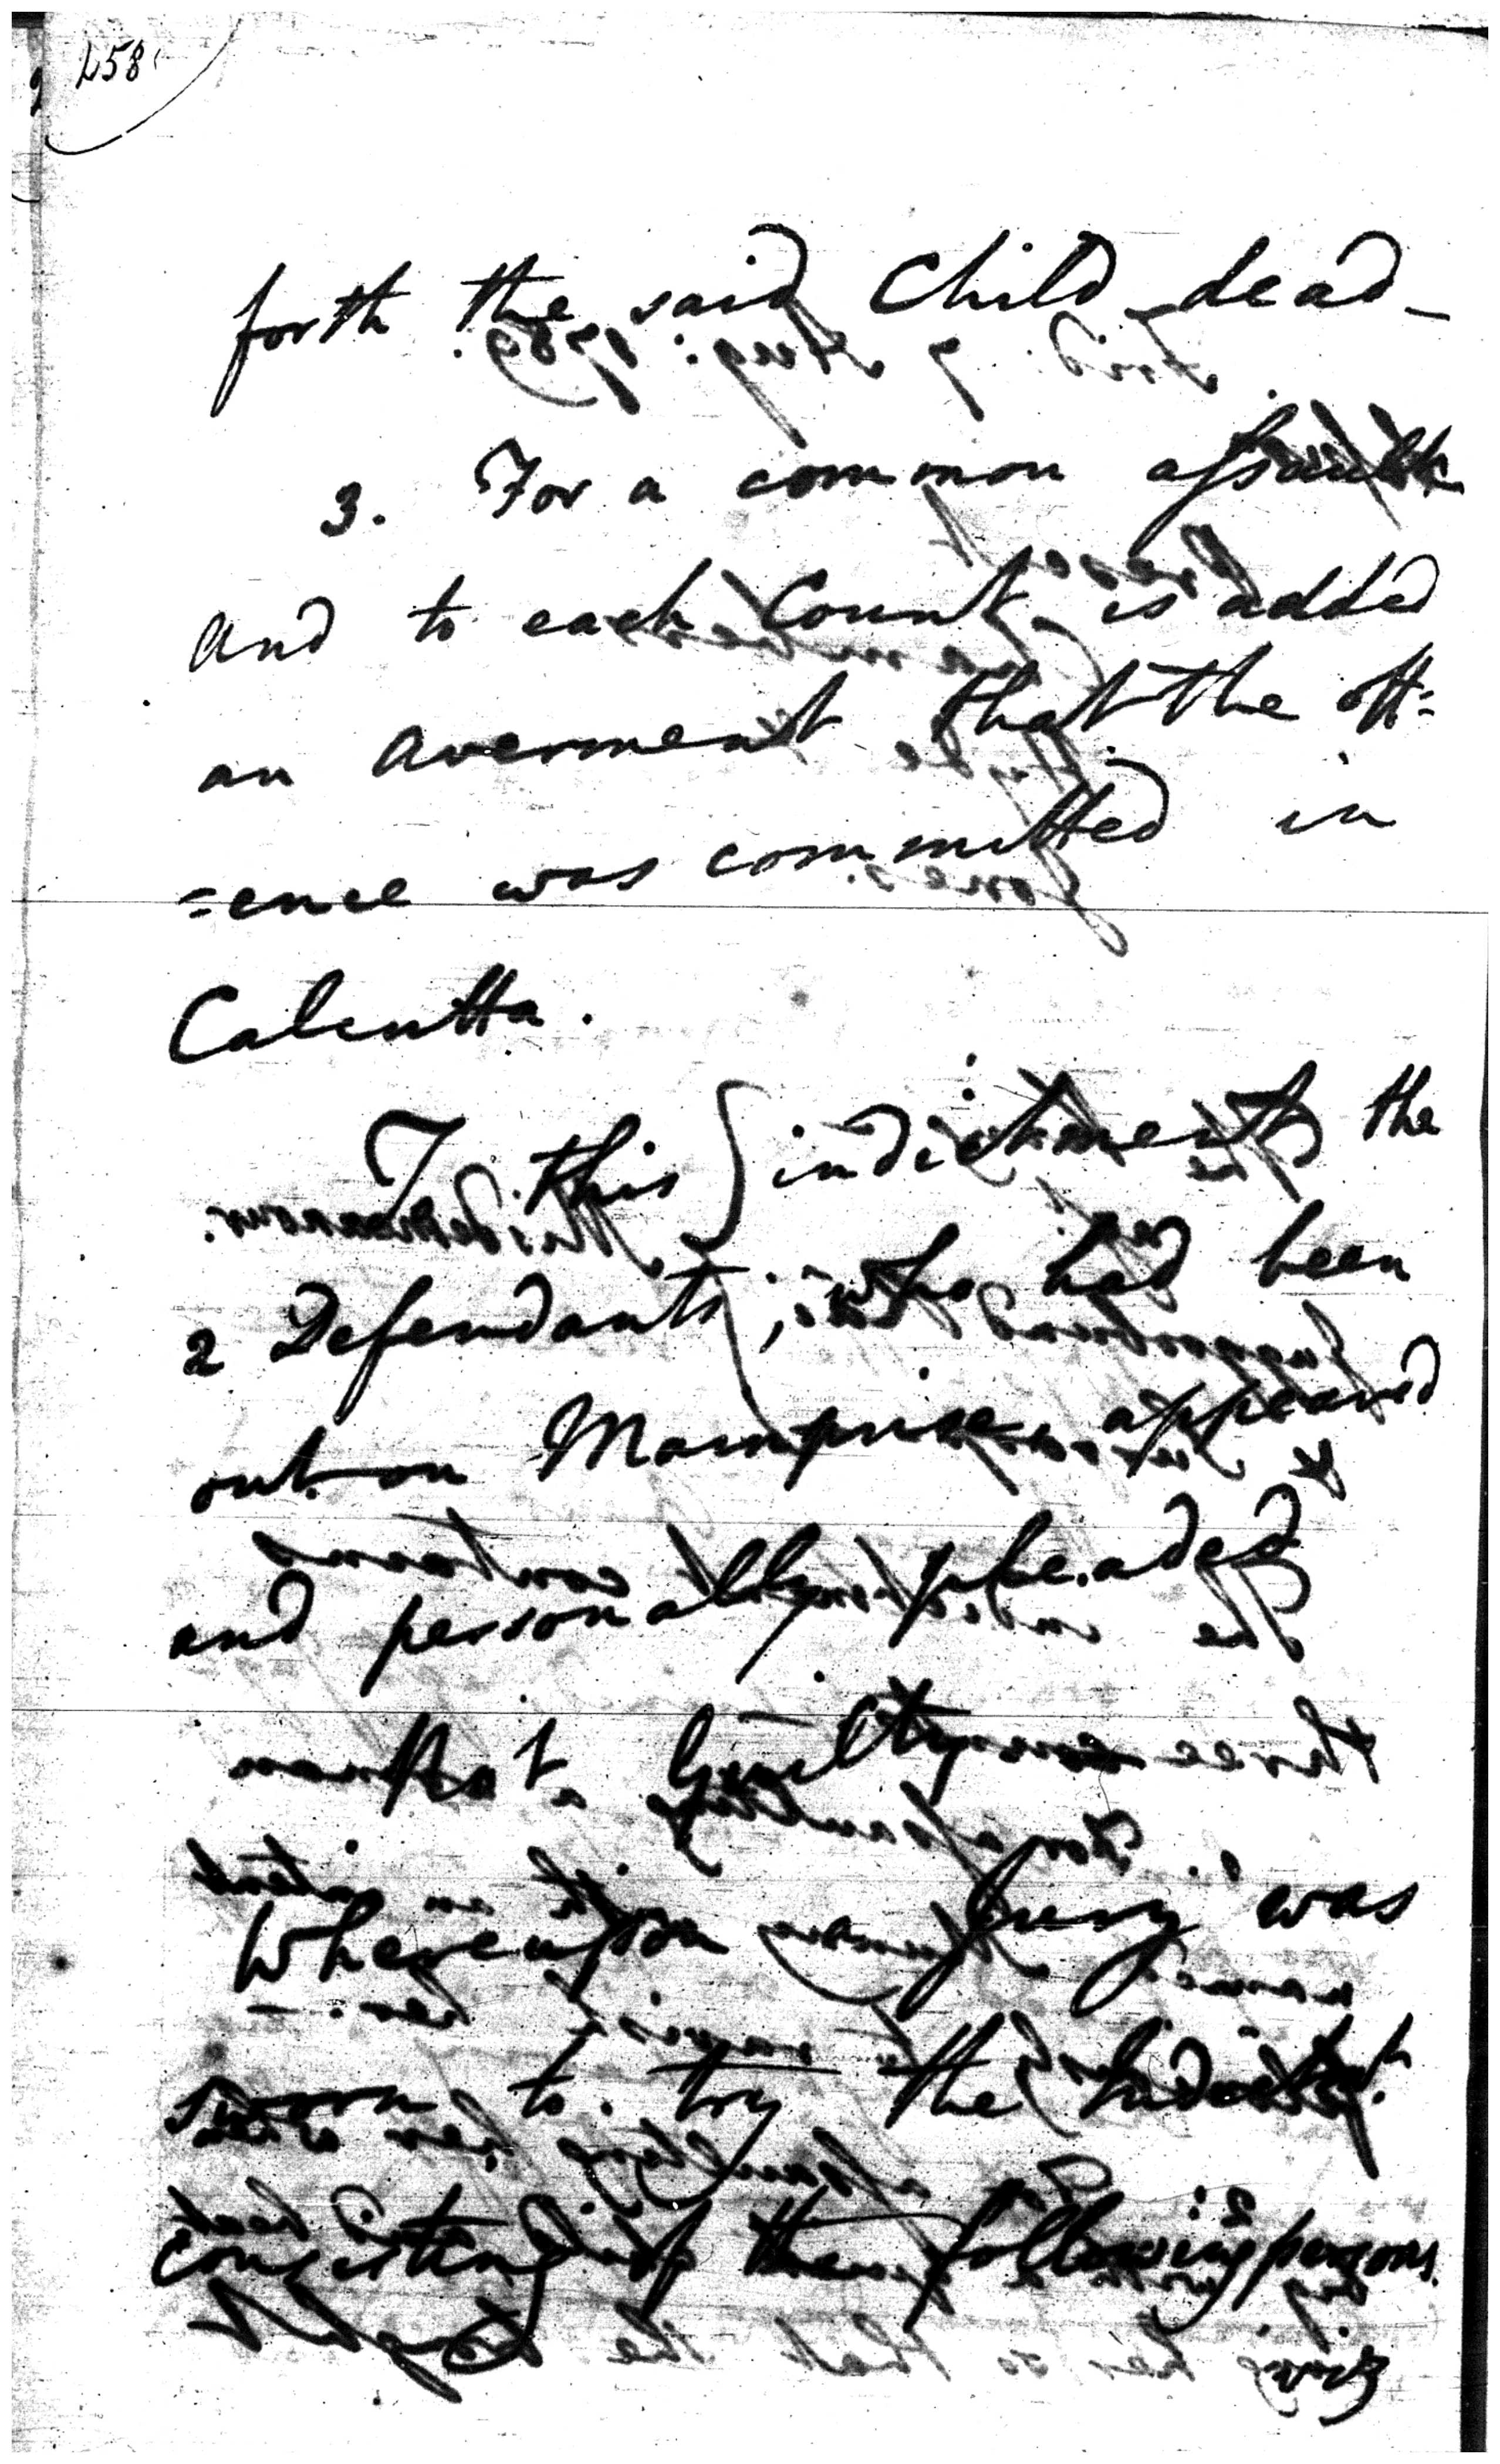 258
forth the said Child dead_
3. For a common assault
and to each Count is added
an averment that the off=
=ence was committed in
Calcutta.
To this indictment the
2 Defendants, who had been
out on Mainprise, appeared
and personally pleaded
Not Guilty
Whereupon a Jury was
sworn to try the Indictmt.
consisting of the following persons.
viz